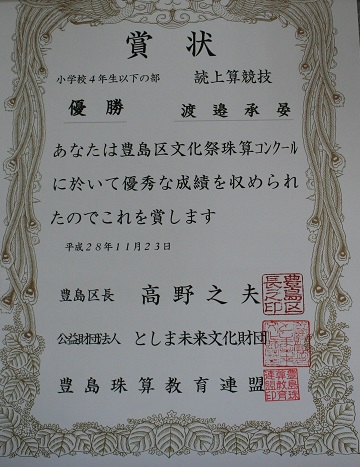 賞状
小学校4年生以下の部 読上算競技
優勝 渡邉承晏
あなたは豊島区文化祭珠算コンクール
に於いて優秀な成績を収められ
たのでこれを賞します
平成28年11月23日
豊島区長 高野之夫
公益財団法人 としま未来文化財団
豊島珠算教育連盟
豊島区長之印
豊島珠算教育連盟印